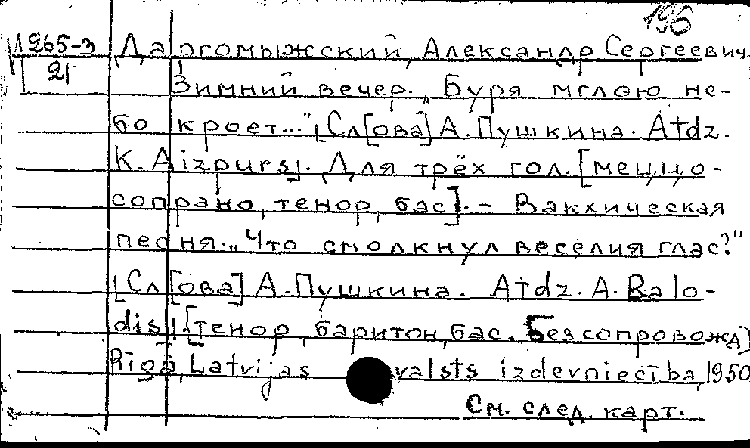 196
11265-3 Даргомыжский, Александр Сергеевич.
21 Зимний вечер. „Буря мглою не-
бо кроет..." [Сл[ова] А. Пушкина. Atdz.
K. Aizpurs]. Для трёх гол. [меццо-
сопрано, тенор, бас]. - Вакхическая
песня. „Что смолкнул веселия глас?"
[Сл[ова] А. Пушкина. Atdz. A. Balo-
dis]. [тенор, баритон, бас. Без сопровожд]
Rīgā, Latvijas valsts izdevniecība, 1950
См. след. карт.